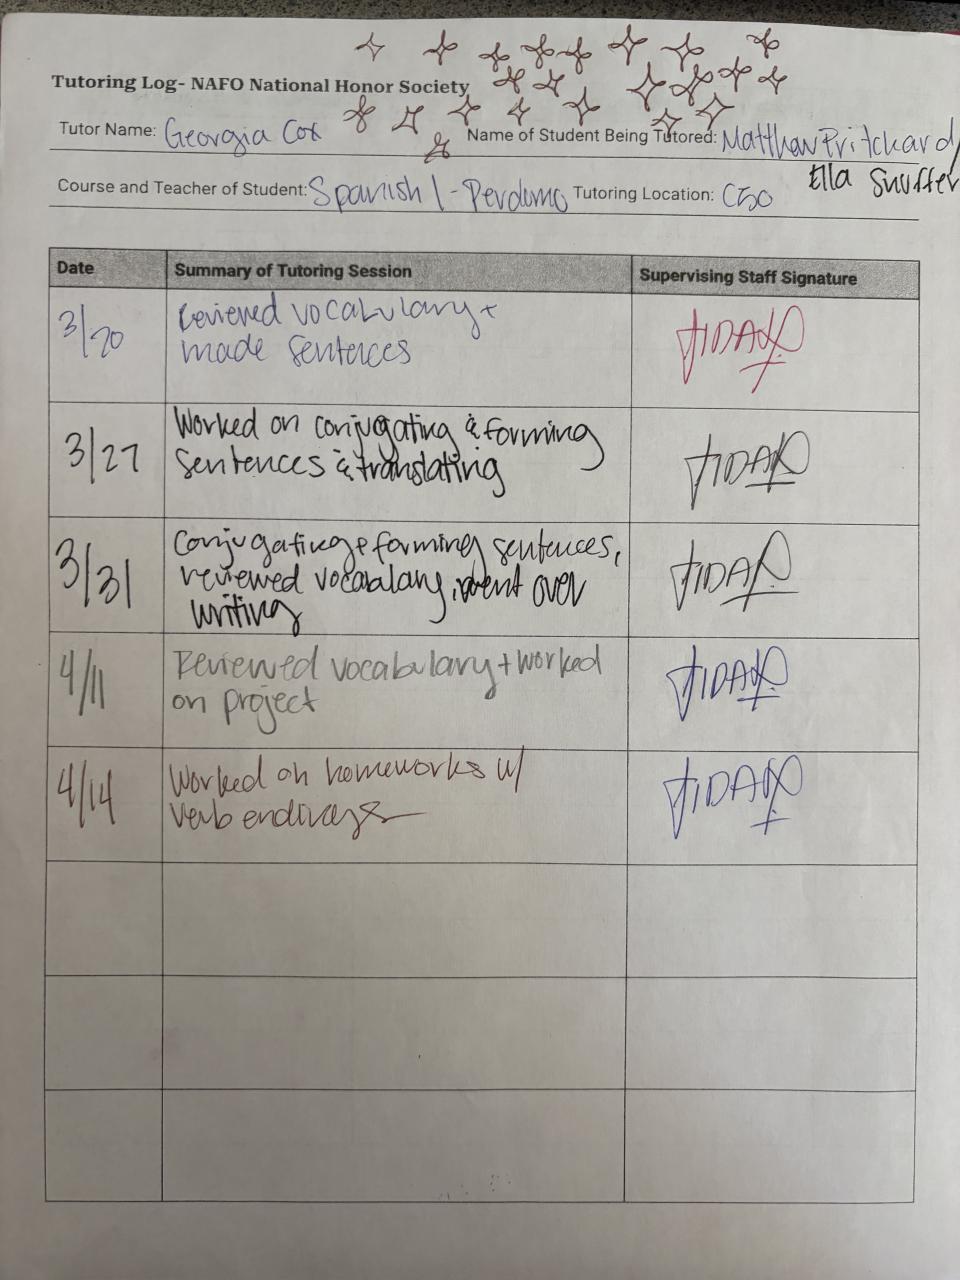 Tutoring Log- NAFO National Honor Society
Tutor Name: Georgia Cox Name of Student Being Tutored: Matthew Pritchard/
Ella Snuffer
Course and Teacher of Student: Spanish 1 - Perdomo Tutoring Location: C50
Date Summary of Tutoring Session Supervising Staff Signature
3/20 Reviewed vocabulary +
made sentences
3/27 Worked on conjugating & forming
sentences & translating
3/31 Conjugating + forming sentences,
reviewed vocabulary, went over
writing
4/11 Reviewed vocabulary + worked
on project
4/14 Worked on homeworks w/
verb endings